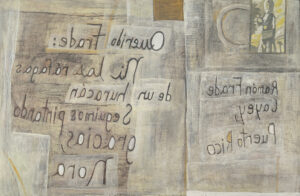 Querido Frade:
Ni las ráfagas
de un huracán
Seguimos pintando
gracias,
Nora
Ramón Frade
Cayey,
Puerto Rico